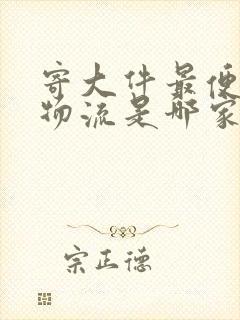 寄大件最便
物流是那家
宗正德